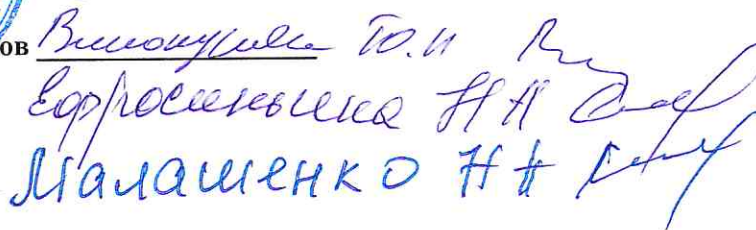 ов Винокурова Ю.И
Ефросинькина Н Н
Малашенко Н Н